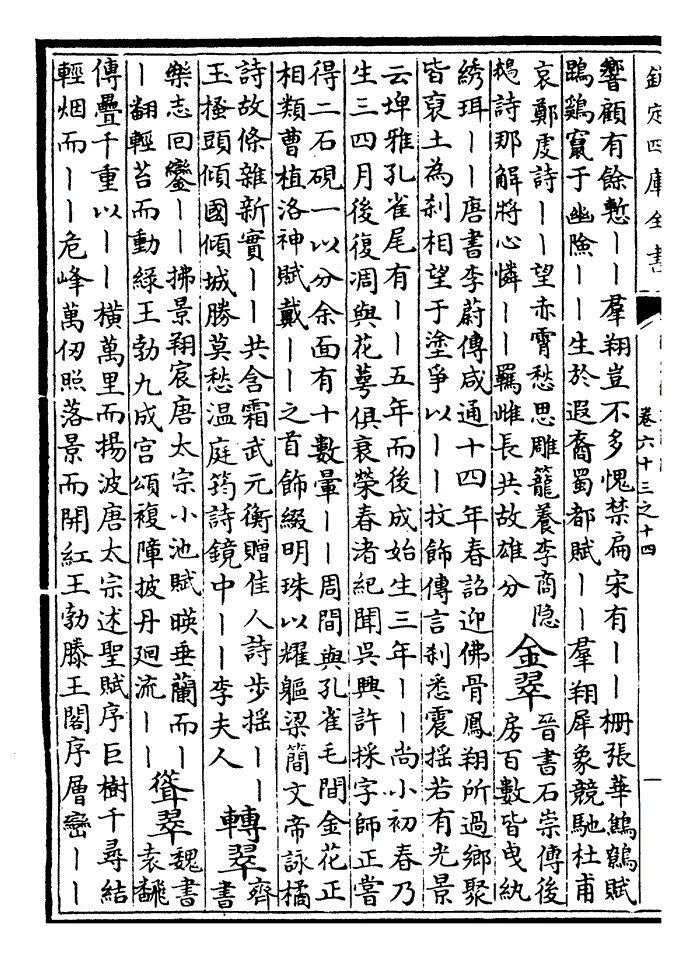 欽定四庫全書
卷六十三之十四
響顧有餘慙丨丨羣翔豈不多愧禁扁宋有丨丨柵張華鷦鷯賦
鵾鷄竄于幽險丨丨生於遐裔蜀都賦丨丨羣翔犀象競馳杜甫
哀鄭虔詩丨丨望赤霄愁思雕籠養李商隐
鵝詩那解將心憐丨丨羈雌長共故雄分
金翠
晉書石崇傳後
房百數皆曳紈
綉珥丨丨唐書李蔚傳咸通十四年春詔迎佛骨鳳翔所過鄉聚
皆裒土為刹相望于塗爭以丨丨抆飾傳言刹悉震搖若有光景
云埤雅孔雀尾有丨丨五年而後成始生三年丨丨尚小初春乃
生三四月後復凋與花萼俱衰榮春渚紀聞吳興許採字師正嘗
得二石硯一以分余面有十數暈丨丨周間與孔雀毛間金花正
相類曹植洛神賦戴丨丨之首飾綴明珠以耀軀梁簡文帝詠橘
詩故條雜新實丨丨共含霜武元衡贈佳人詩步搖丨丨
玉搔頭傾國傾城勝莫愁温庭筠詩鏡中丨丨李夫人
轉翠
齊書
樂志回鑾丨丨拂景翔宸唐太宗小池賦暎垂蘭而丨
丨翻輕苔而動緑王勃九成宫頌複障披丹廻流丨丨
聳翠
魏書
袁翻
傳疊千重以丨丨橫萬里而揚波唐太宗述聖賦序巨樹千尋結
輕烟而丨丨危峰萬仞照落景而開紅王勃滕王閣序層巒丨丨